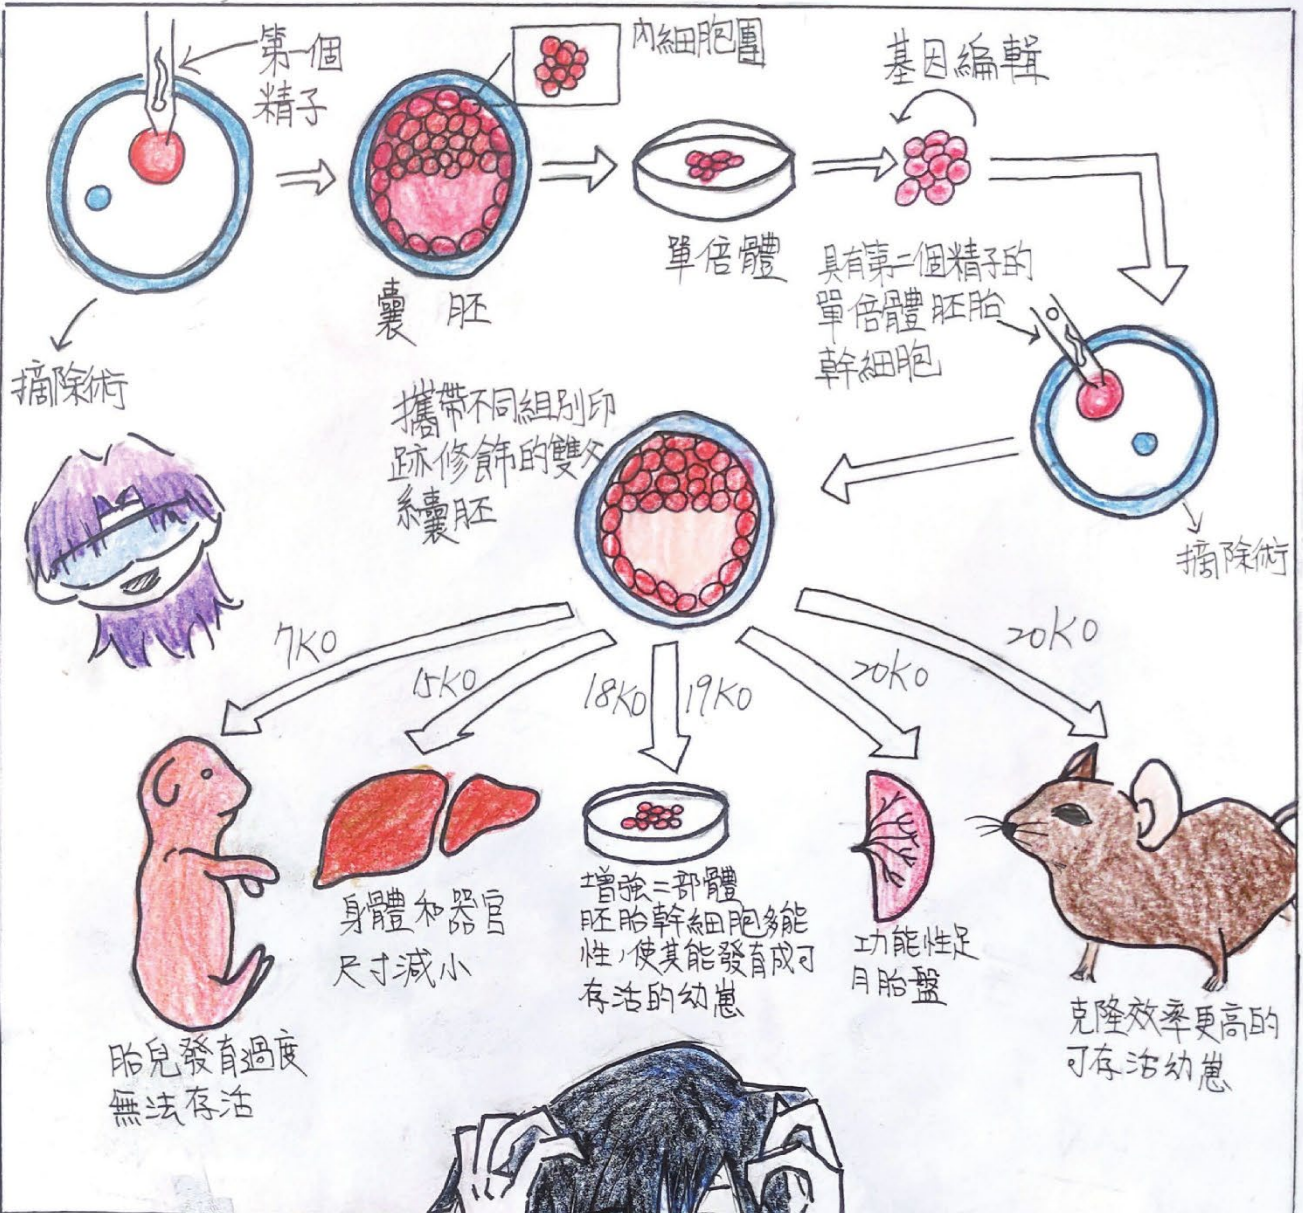 第一個
精子
內細胞團
基因編輯
囊胚
單倍體
摘除術
具有第二個精子的
單倍體胚胎
幹細胞
摘除術
攜帶不同組別印
跡修飾的雙父
系囊胚
7KO
15KO
18KO
19KO
20KO
20KO
胎兒發育過度
無法存活
身體和器官
尺寸減小
增強二部體
胚胎幹細胞多能
性，使其能發育成可
存活的幼崽
功能性足
月胎盤
克隆效率更高的
可存活幼崽